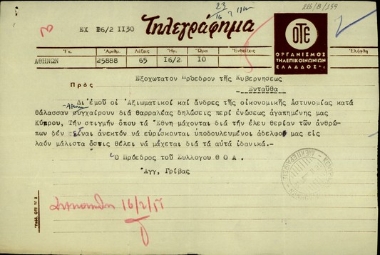 ΕΧ Ε6/2 1130
Τηλεγράφημα
ΟΤΕ
ΟΡΓΑΝΙΣΜΟΣ
ΤΗΛΕΠΙΚΟΙΝΩΝΙΩΝ
ΕΛΛΑΔΟΣ
ΑΘΗΝΩΝ 25888 65 16/2 10
Εξοχωτατον Πρόεδρον τής Κυβερνησεως
Πρός Ενταύθα
Δι εμού οί Αξιωματικοί καί άνδρες τής οικονομικής αστυνομίας κατά
θάλασσαν συγχαίρουν διά θαρραλέας δηλώσεις περί ενώσεως αγαπημένης μας
Κύπρου, Τήν στιγμήν όπου τά Εθνη μάχονται διά τήν έλευ θερίαν τών άνθρώ-
πων δέν είναι άνεκτόν νά εύρίσκονται υποδουλωμένοι άδελφοί μας είς
λαόν μάλιστα όστις θέλει νά μάχεται διά τά αυτά ίδανικά.
Ο Πρόεδρος τού Συλλόγου Θ Ο Δ .
Αγγ, Γρίβας
16/2/51